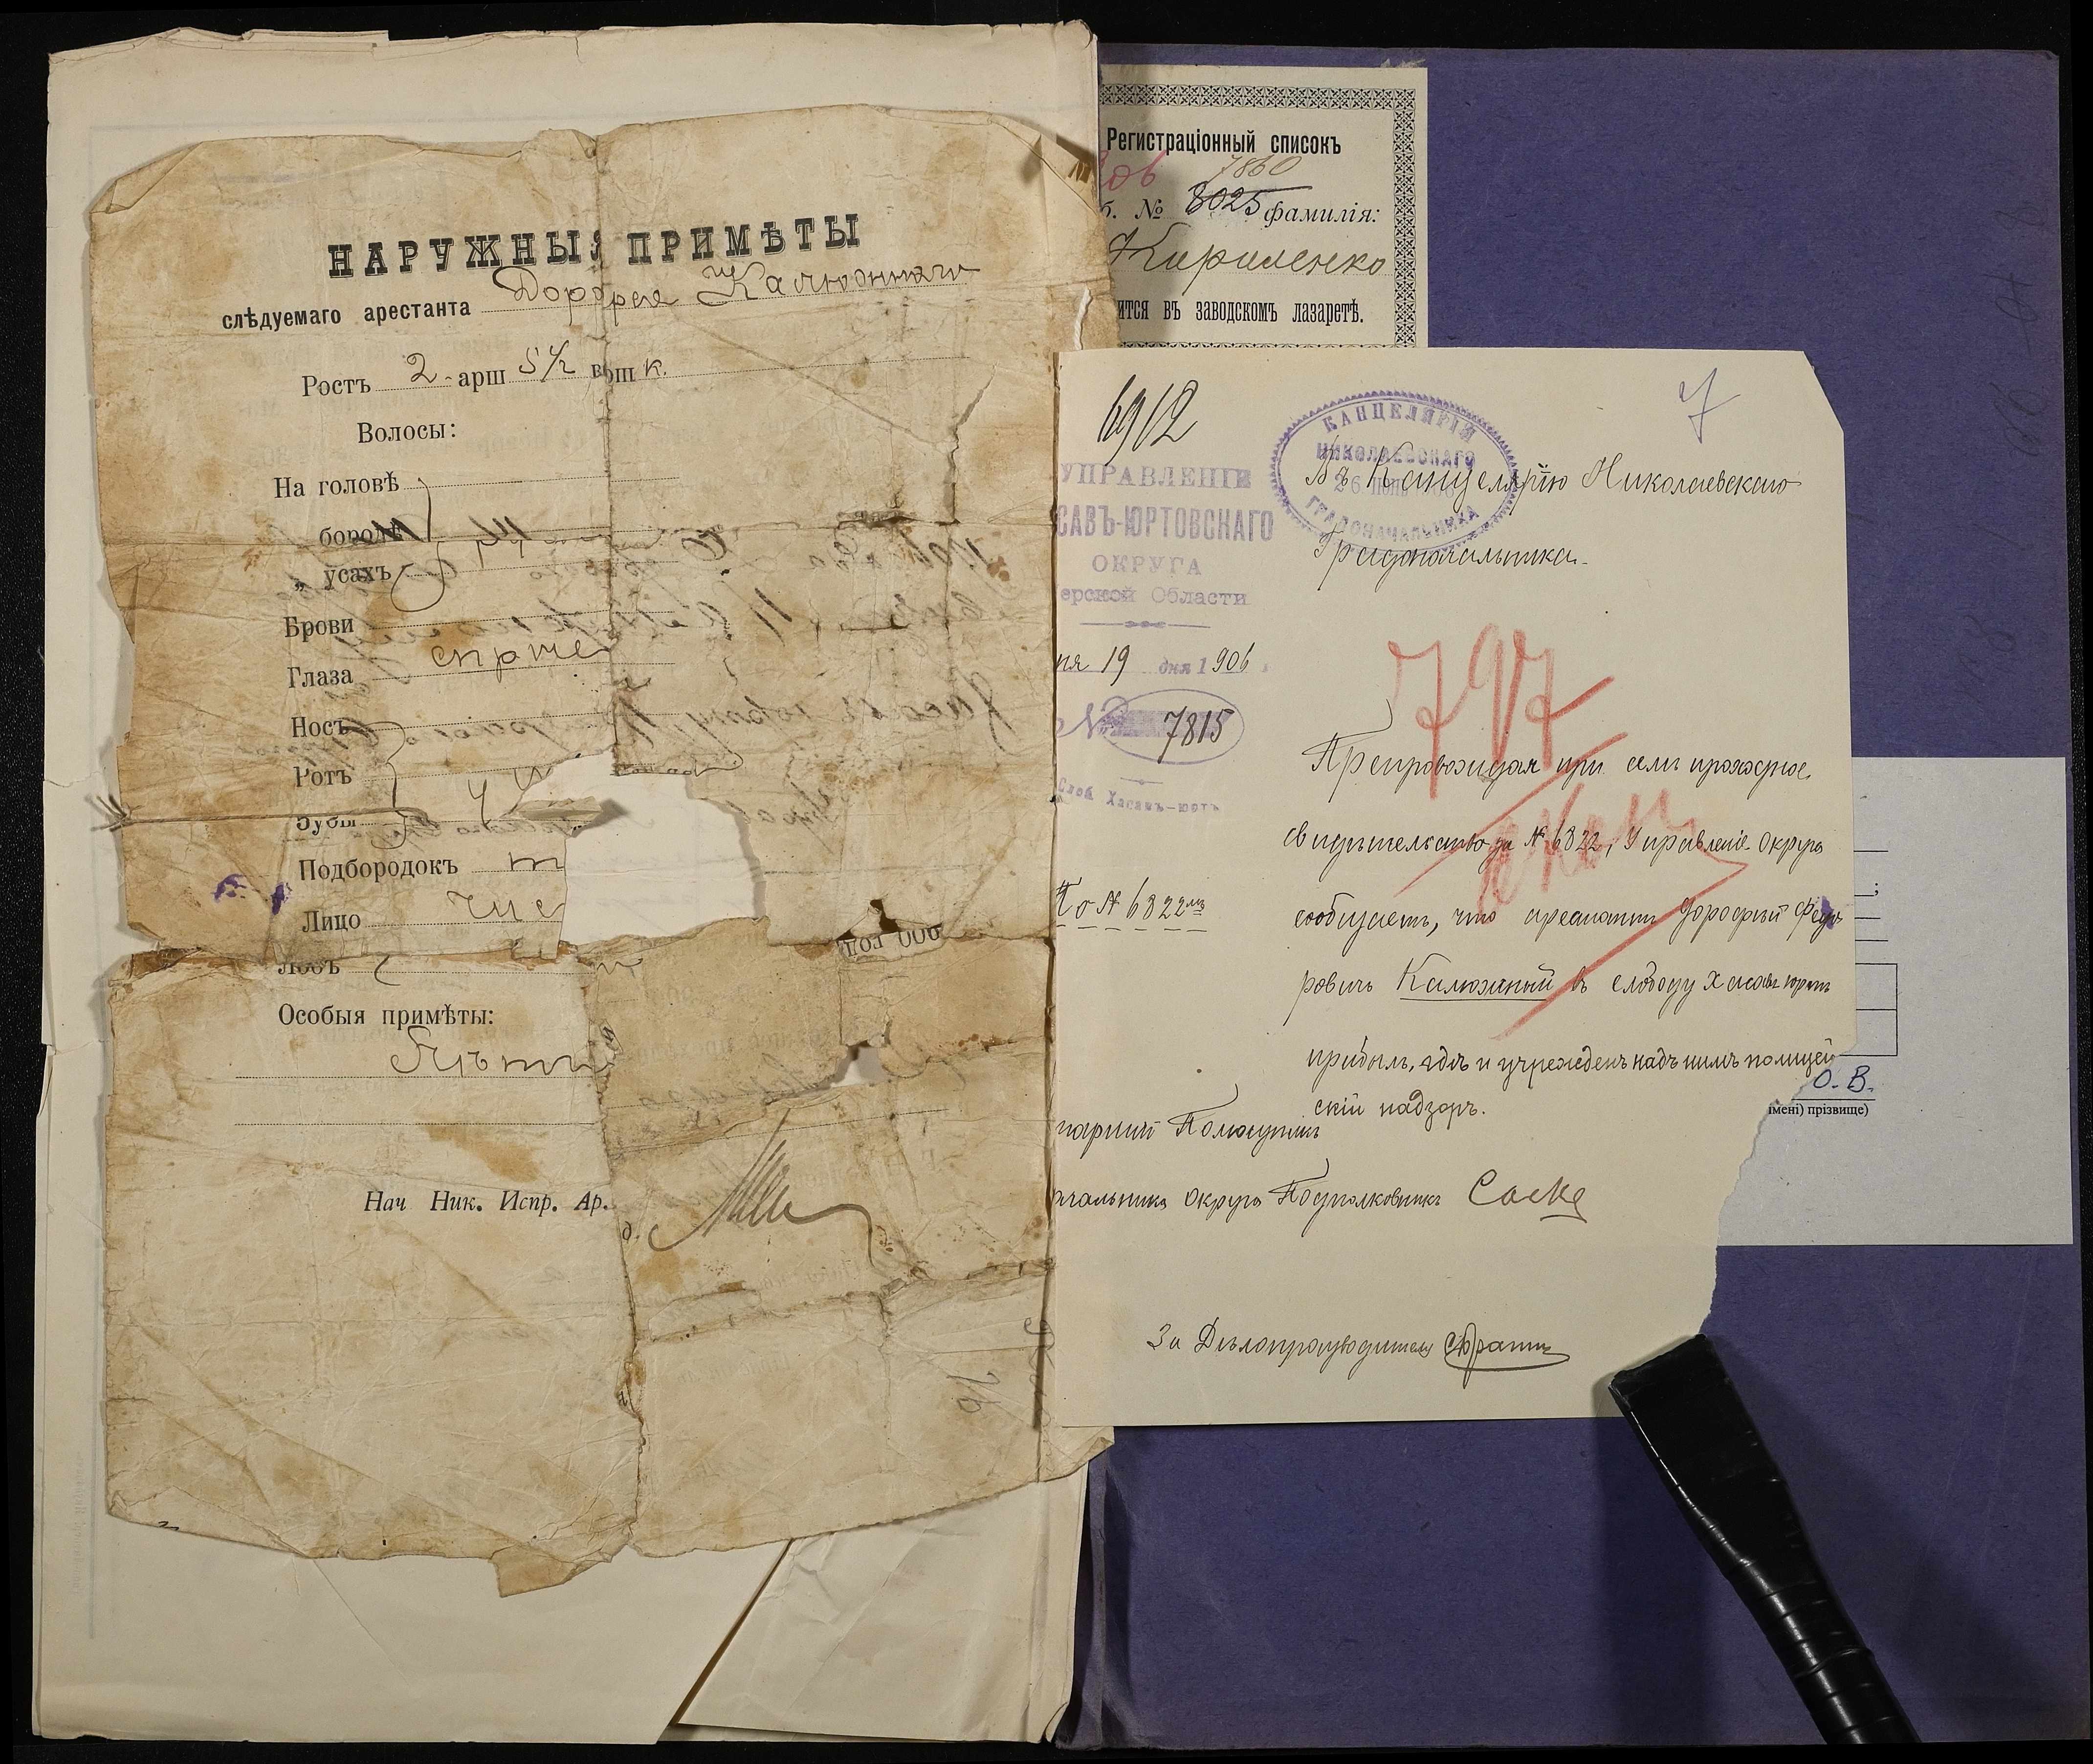 НАРУЖНЫЯ ПРИМѢТЫ
слѣдуемаго арестанта Дорофея Калюжнаго
Ростъ 2 арш 5½ вершк.
Волосы:
На головѣ
бородѣ
„ усахъ
Брови
Глаза
Носъ
Ротъ
Зубы
Подбородокъ
Лицо чис
Лобъ
Особыя примѣты:
Нач Ник. Испр. Ар.
Регистраціонный списокъ
7860
б. № 8025 фамилія:
Кириленко
ится въ заводскомъ лазаретѣ.
6912
7
КАНЦЕЛЯРІЯ
НИКОЛАЕВСКАГО
ГРАДОНАЧАЛЬНИКА
УПРАВЛЕНІЕ
САВЪ-ЮРТОВСКАГО
ОКРУГА
ерской Области
ня 19 дня 1906
№ 7815
Слоб Хасавъ-юртъ
Въ Канцелярію Николаевскаго
Градоначальника.
797
Препровождая при семъ проходное
свидѣтельство за № 6822, Управленіе Округа
сообщаетъ, что арестантъ Дорофей Федо
ровичъ Калюжный въ слободу Хасавъ юртъ
прибылъ, гдѣ и учрежденъ надъ нимъ полицей
скій надзоръ.
По № 6822
чальника Округа Подполковникъ
За Дѣлопроизводителя
О. В.
імені) прізвище)